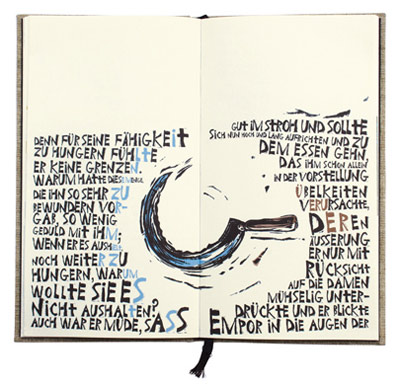 DENN FÜR SEINE FÄHIGKEIT
ZU HUNGERN FÜHLTE
ER KEINE GRENZEN.
WARUM HATTE DIESE MENGE
DIE IHN SO SEHR ZU
BEWUNDERN VOR-
GAB, SO WENIG
GEDULD MIT IHM;
WENN ER ES AUSHIELT
NOCH WEITER ZU
HUNGERN, WARUM
WOLLTE SIE ES
NICHT AUSHALTEN?
AUCH WAR ER MÜDE, SASS
GUT IM STROH UND SOLLTE
SICH NUN HOCH UND LANG AUFRICHTEN UND ZU
DEM ESSEN GEHN
DAS IHM SCHON ALLEIN
IN DER VORSTELLUNG
ÜBELKEITEN
VERURSACHTE,
DEREN
ÄUSSERUNG
ER NUR MIT
RÜCKSICHT
AUF DIE DAMEN
MÜHSELIG UNTER-
DRÜCKTE UND ER BLICKTE
EMPOR IN DIE AUGEN DER